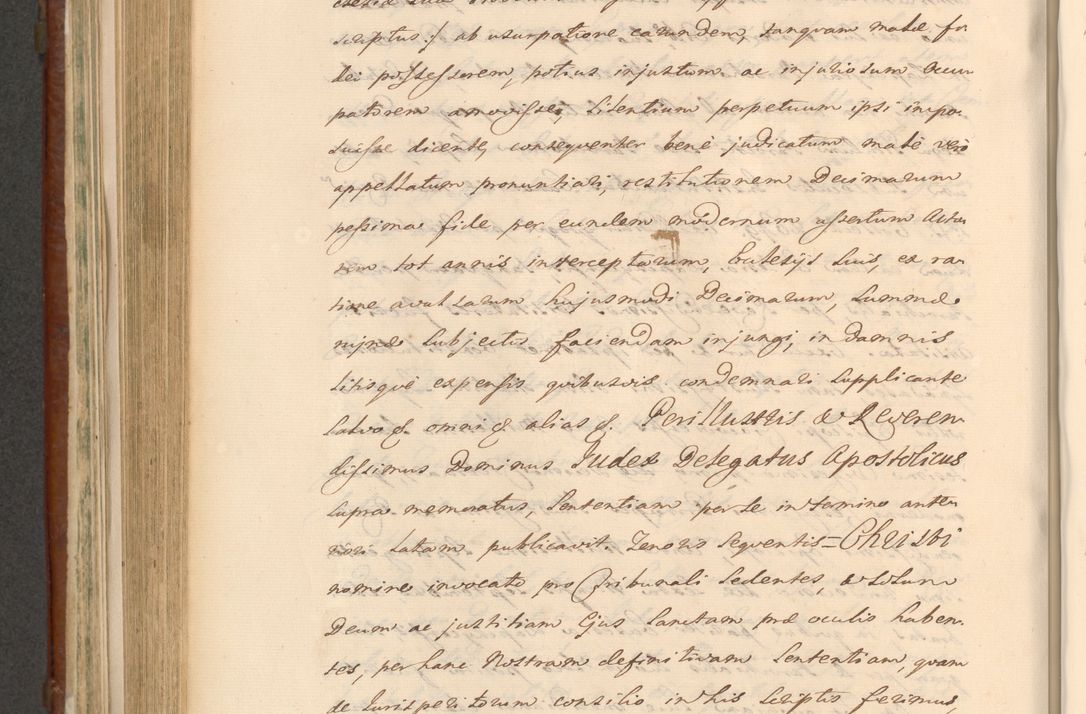 scriptus :/ ab usurpatione earundem, tanquam malæ fi
dei possessorem, potius injustum ac injuriosum occu
patorem amovisse, silentium perpetuum ipsi impo
suisse dicente, consequenter bene judicatum male vero
appellatum pronuntiari, restitutionem Decimarum
pessima fide per eundem modernum assertum Acto
rem tot annis interceptarum, Ecclesijs suis, ea ra
tione avulsarum hujusmodi Decimarum, summe
subjectis faciendam injungi, in damnis
litisque expensis quibusvis condemnari supplicante
salvo omni alias Perillustris & Reveren
dissimus Dominus Judex Delegatus Apostolicus
supra memoratus, Sententiam per se in termino ante
riori latam publicavit. Tenoris sequentis = Christi
nomine invocato pro Tribunali sedentes, & solum
Deum ac justitiam Ejus Sanctam præ oculis haben
tes, per hanc Nostram definitivam Sententiam, quam
de Jurisperitorum consilio in his scriptis ferimus,